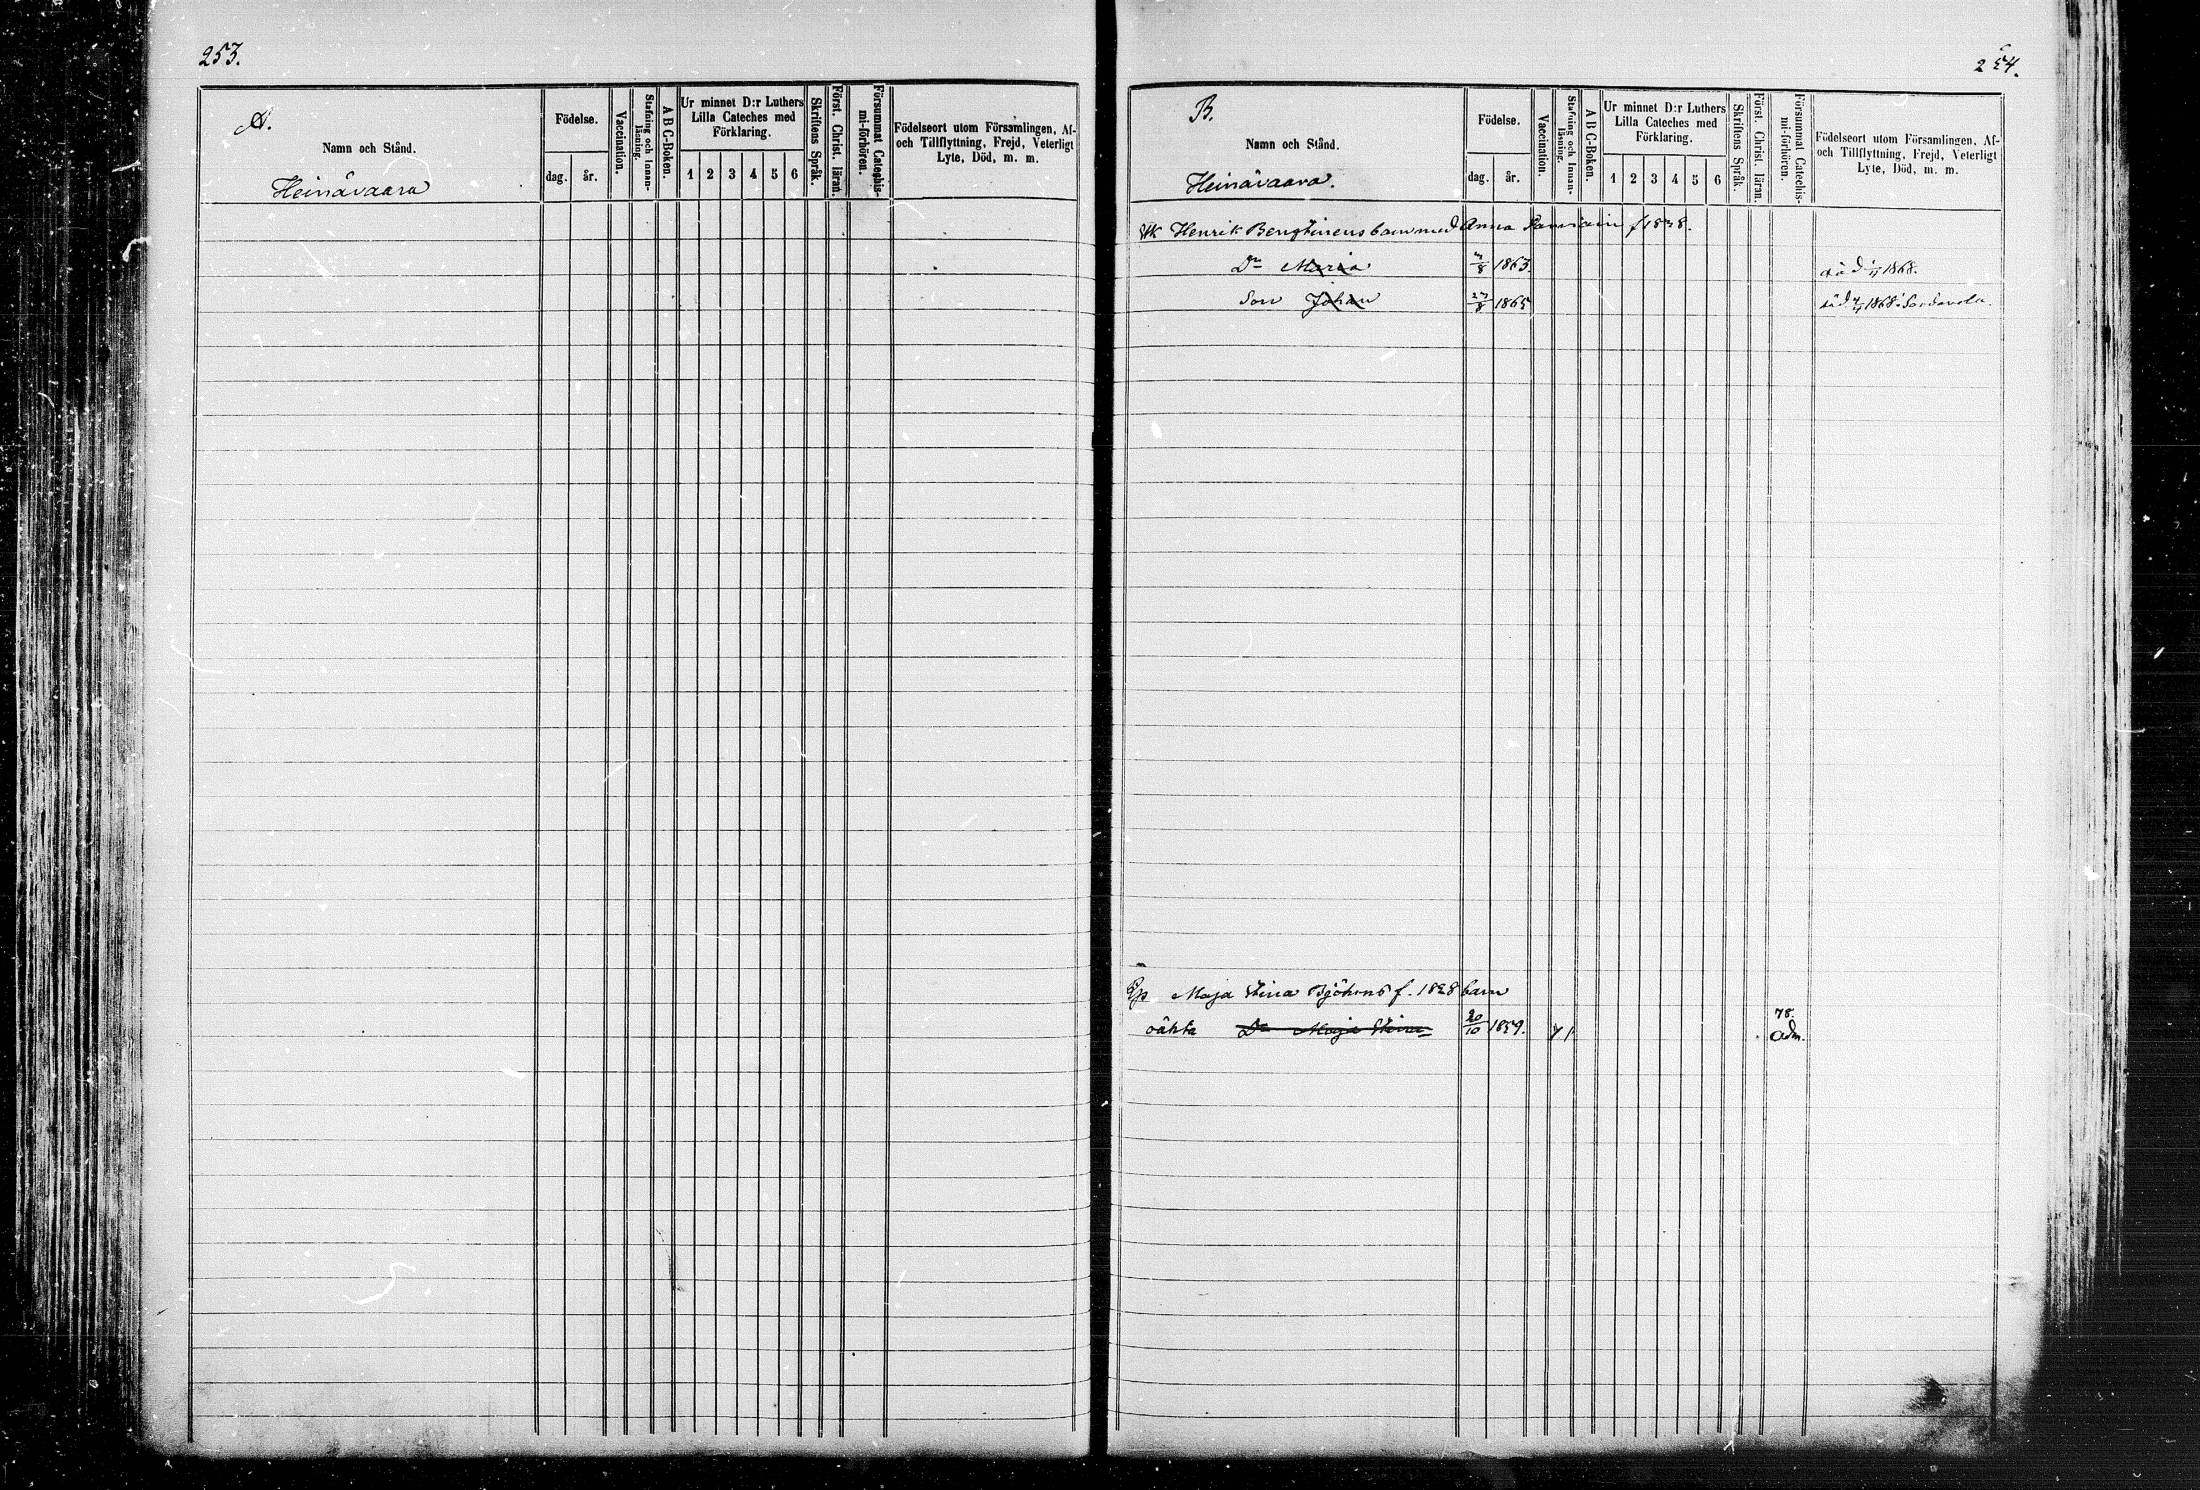 253.
A.
Namn och Stånd.
Heinävaara
Födelse.
dag. år.
Vaccination.
Stafning och Innan-
läsning.
A B C-Boken.
Ur minnet D:r Luthers
Lilla Cateches med
Förklaring.
1 2 3 4 5 6
Skriftens Språk.
Först. Christ. läran.
Försummat Catechis-
mi-förhören.
Födelseort utom Församlingen, Af-
och Tillflyttning, Frejd, Veterligt
Lyte, Död, m. m.
254.
B.
Namn och Stånd.
Heinävaara.
Födelse.
dag. år.
Vaccination.
Stafning och Innan-
läsning.
A B C-Boken.
Ur minnet D:r Luthers
Lilla Cateches med
Förklaring.
1 2 3 4 5 6
Skriftens Språk.
Först. Christ. läran.
Försummat Catechis-
mi-förhören.
Födelseort utom Församlingen, Af-
och Tillflyttning, Frejd, Veterligt
Lyte, Död, m. m.
Henrik Bengtinens barn med Anna f 1838.
Dr Maria 7/8 1863. död 1868.
Son Johan 27/8 1865 död 1868 i Sordavala.
Maja Stina f. 1828 barn
oäkta Dr Maja Stina 20/10 1859. 78.
Adm.